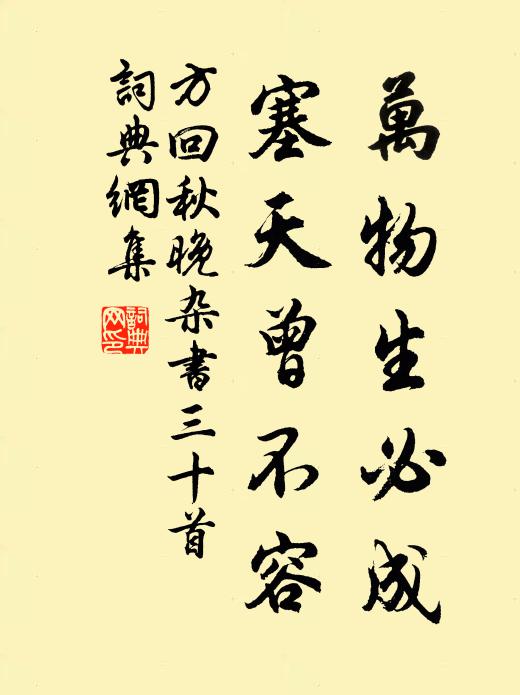 萬物生必成
塞天曾不容
方回秋晚杂書三十首
詞典網集
詞典網印